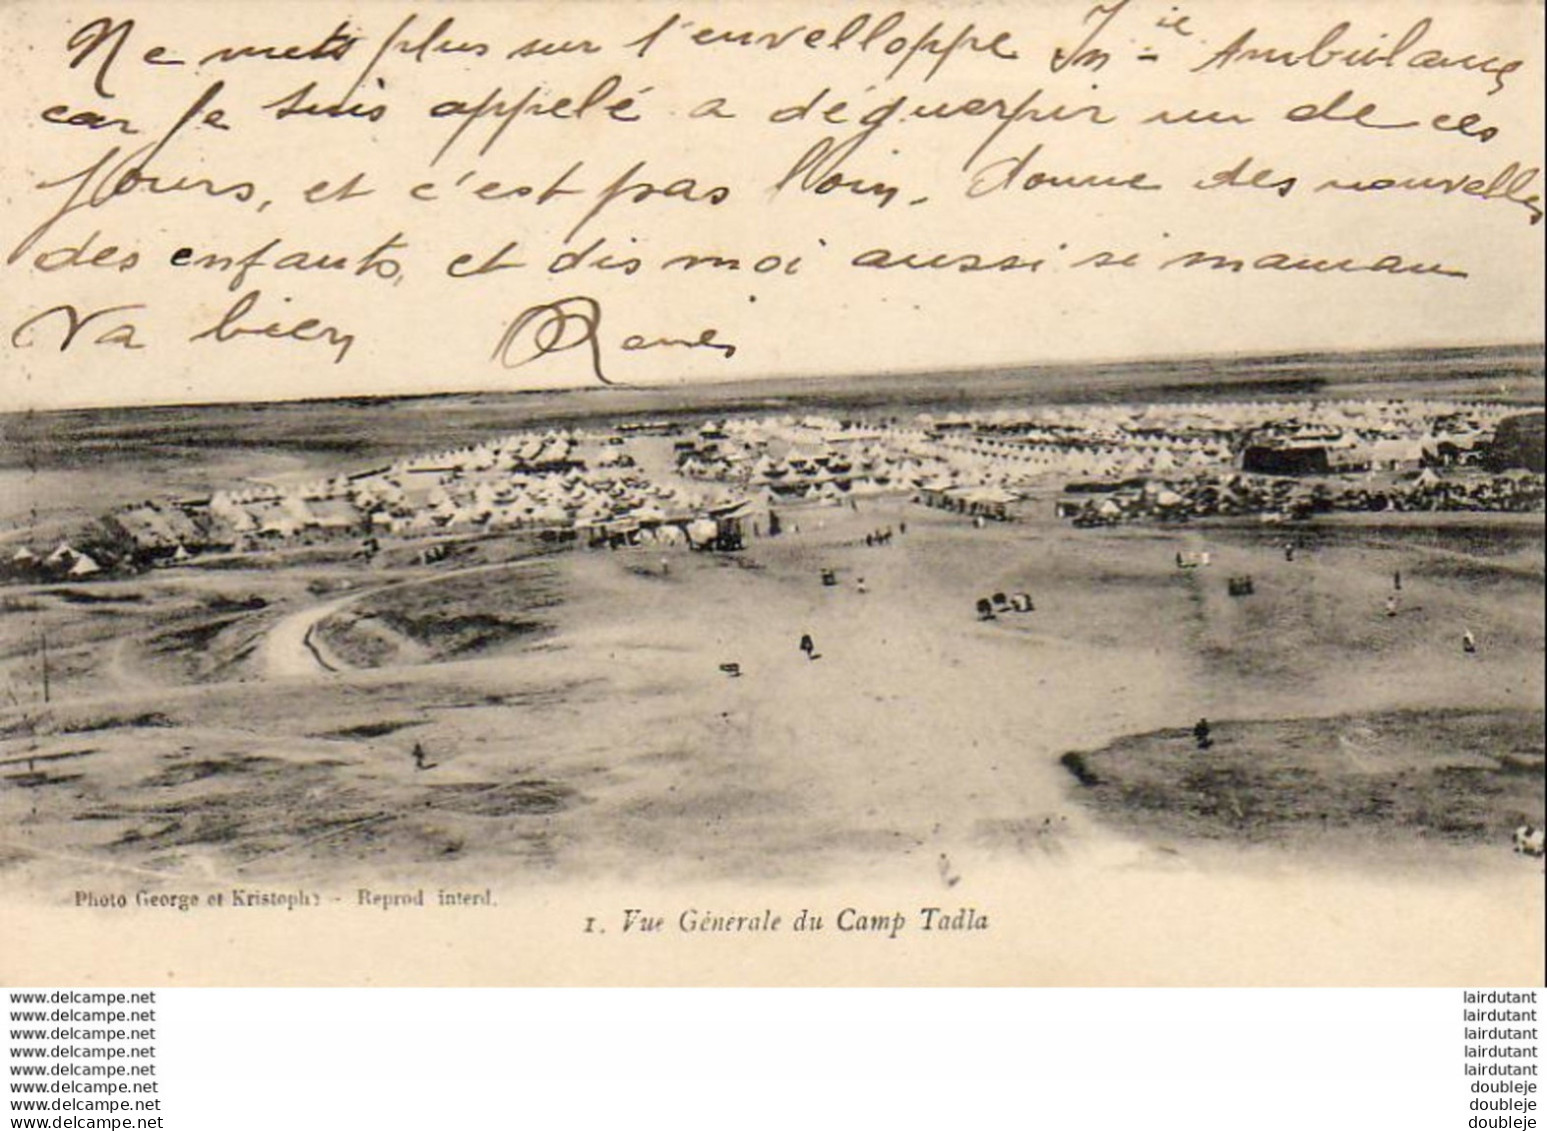 Ne mets plus sur l'envelloppe Ambulance
car Je suis appelé a déguerpir un de ces
Jours, et c'est pas loin. donne des nouvelles
des enfants, et dis moi aussi si maman
Va bien
Photo George et Kristophe - Reprod interd.
1. Vue Générale du Camp Tadla
www.delcampe.net
www.delcampe.net
www.delcampe.net
www.delcampe.net
www.delcampe.net
www.delcampe.net
www.delcampe.net
www.delcampe.net
lairdutant
lairdutant
lairdutant
lairdutant
lairdutant
doubleje
doubleje
doubleje